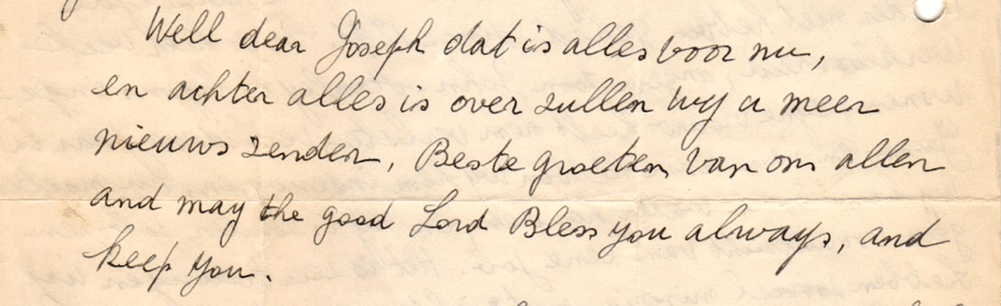 Well dear Joseph dat is alles voor nu,
en achter alles is over zullen wy u meer
nieuws zenden, Beste groeten van ons allen
and may the good Lord Bless you always, and
keep you.